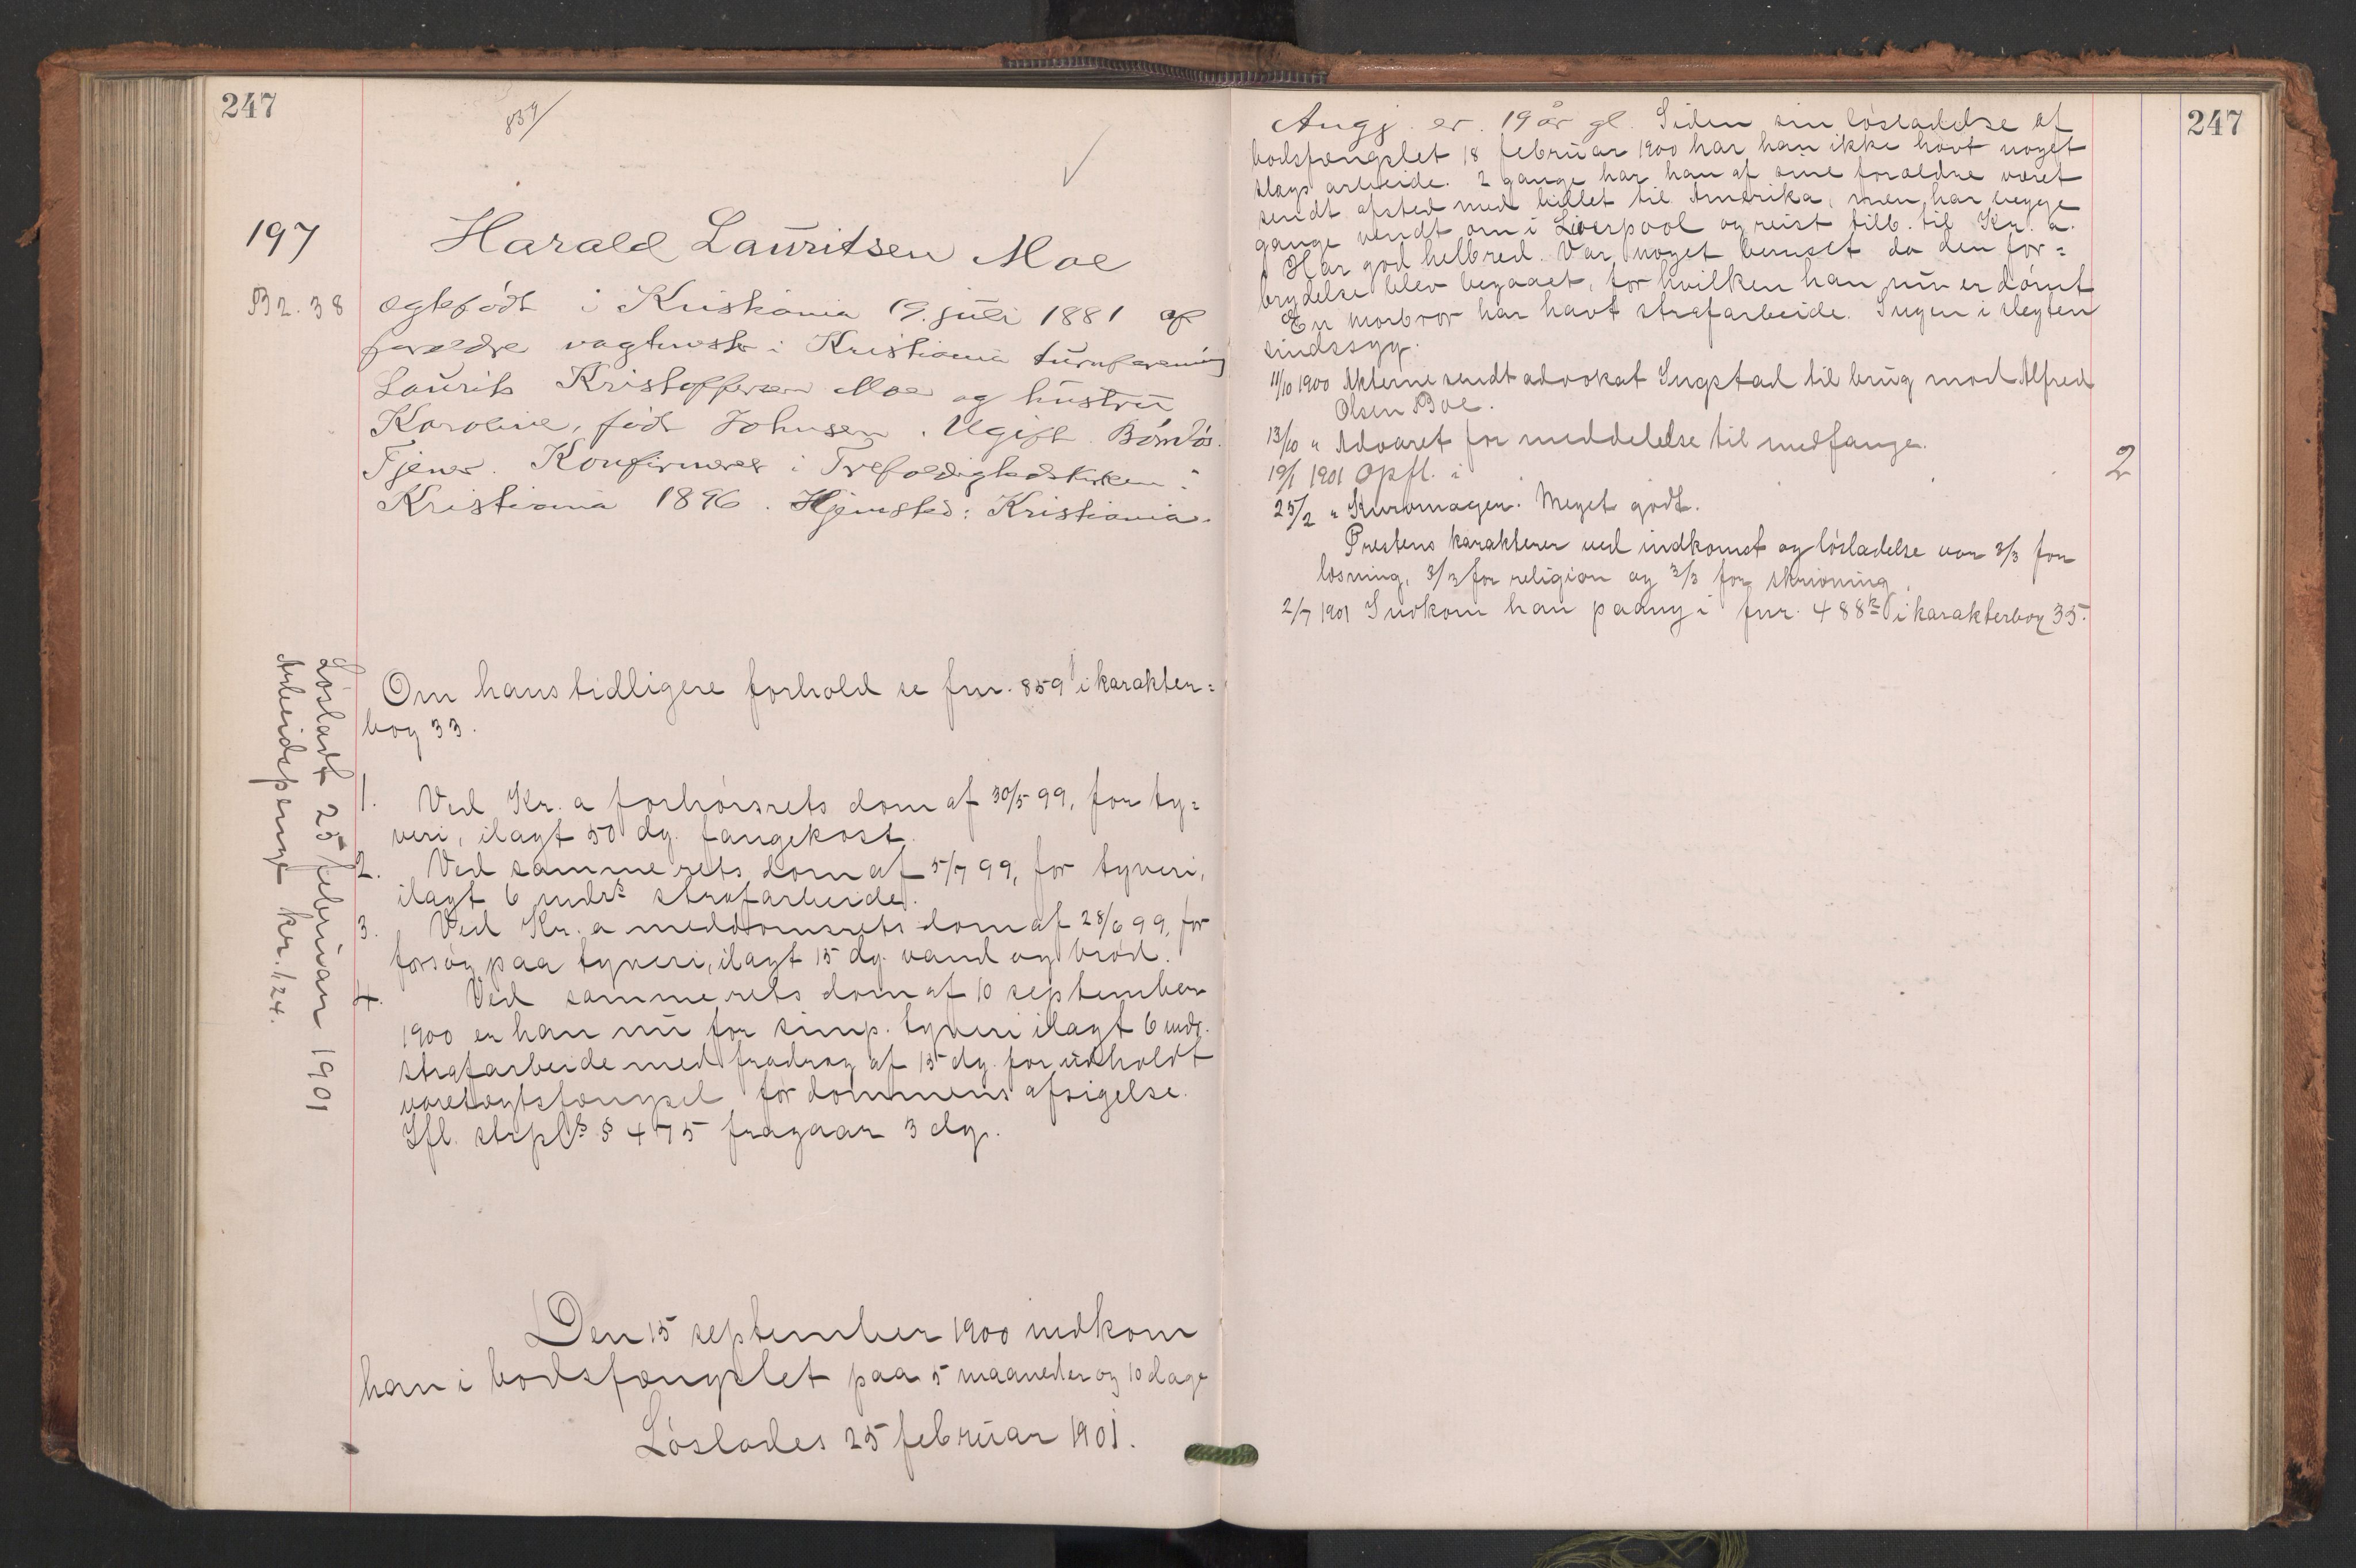 247
839/
197
B2. 38
Harald Lauritsen Moe
ægtefødt i Kristiania 19. juli 1881 af
forældre vagtmester i Kristiania turnforening
Laurits Kristoffersen Moe og hustru
Karoline, født Johnsen. Ugift. Barnløs.
Tjener. Konfirmeret i Trefoldighedskirken i
Kristiania 1896. Hjemsted: Kristiania.
Om hans tidligere forhold se fnr. 859 i karakter=
bog 33.
1. Ved Kr.a forhørsrets dom af 30/5 99, for ty=
veri, ilagt 50 dg. fangekost.
2. Ved samme rets dom af 5/7 99, for tyveri,
ilagt 6 mdrs strafarbeide.
3. Ved Kr.a meddomsrets dom af 28/6 99, for
forsøg paa tyveri, ilagt 15 dg. vand og brød.
4. Ved samme rets dom af 10 september
1900 er han nu for simp. tyveri ilagt 6 mdr.
strafarbeide med fradrag af 15 dg. for udholdt
varetægtsfængsel før dommens afsigelse.
Ifl. strpls § 475 fragaar 3 dg.
Den 15 september 1900 indkom
han i bodsfængslet paa 5 maaneder og 10 dage
Løslades 25 februar 1901.
Løsladt 25 februar 1901
Arbeidspenge kr. 1.24.
247
Angj. er 19 år gl. Siden sin løsladelse af
bodsfængslet 18 februar 1900 har han ikke havt noget
slags arbeide. 2 gange har han af sine forældre været
sendt afsted med billet til Amerika, men har begge
gange vendt om i Liverpool og reist tilb. til Kr.a.
Har god helbred. Var noget beruset da den for=
brydelse blev begaaet, for hvilken han nu er dømt
En morbror har havt strafarbeide. Ingen i slegten
sindssyg.
11/10 1900 Akterne sendt advokat Ingstad til brug mod Alfred
Olsen Boe.
13/10 " Advaret for meddelelse til medfange.
19/1 1901 Opfl. i 2
25/2 " Kurvmager. Meget godt.
Prestens karakterer ved indkomst og løsladelse var 3/3 for
læsning, 3/3 for religion og 3/3 for skrivning.
2/7 1901 Indkom han paany i fnr. 488 i karakterbog 35.